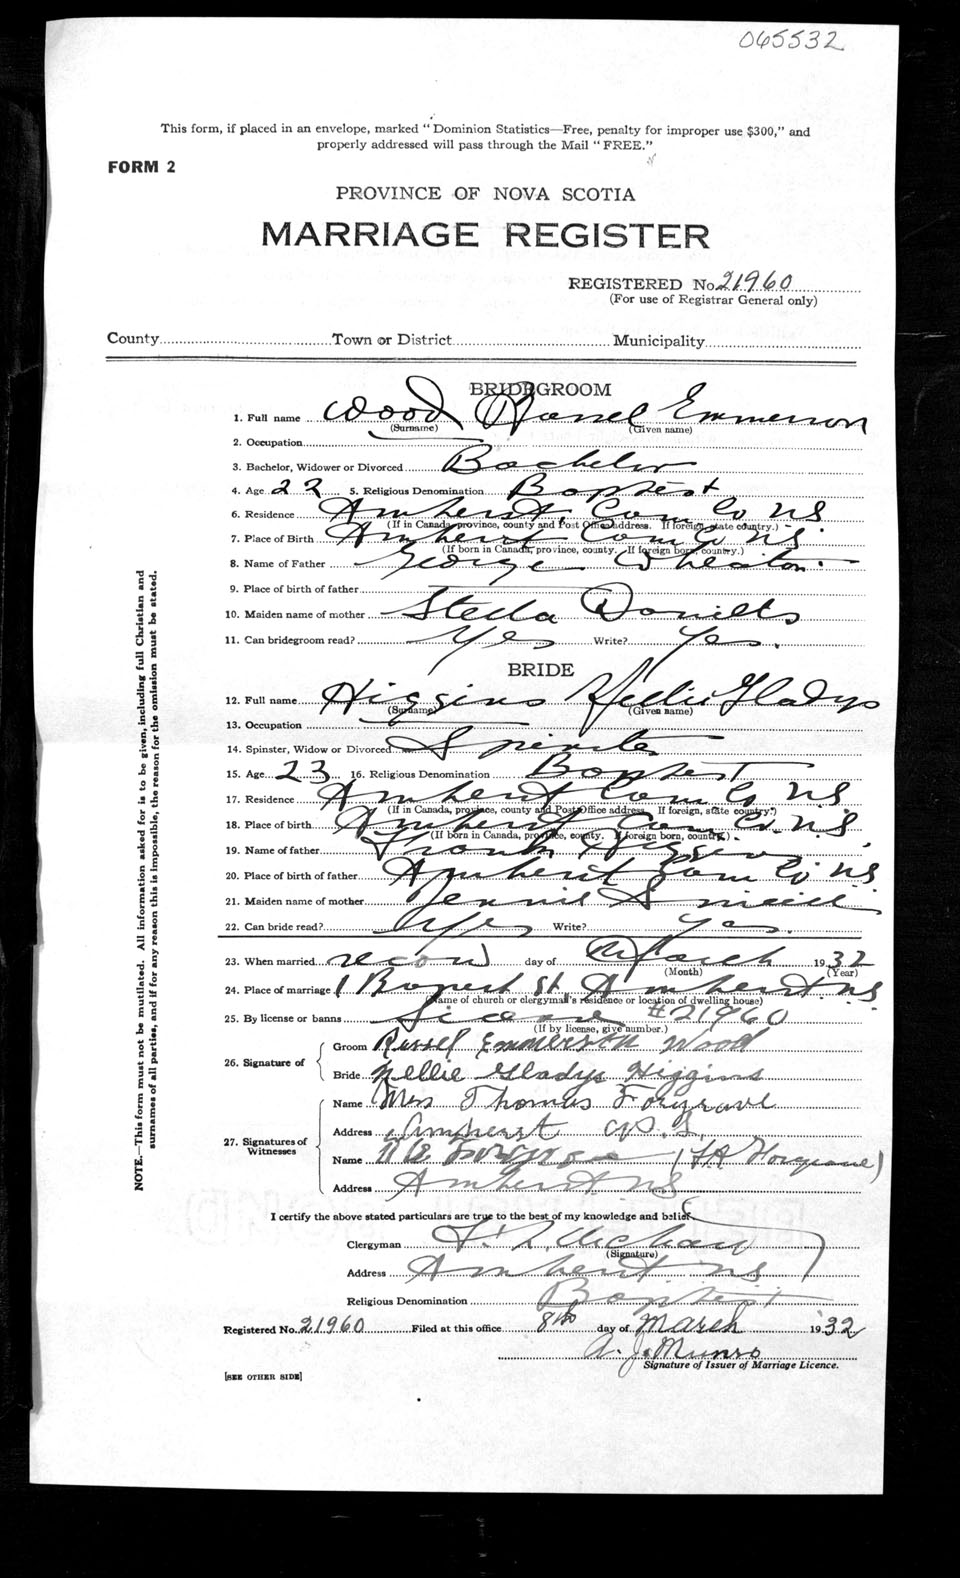 065532
This form, if placed in an envelope, marked "Dominion Statistics—Free, penalty for improper use $300," and
properly addressed will pass through the Mail "FREE."
FORM 2
PROVINCE OF NOVA SCOTIA
MARRIAGE REGISTER
REGISTERED No. 21960
(For use of Registrar General only)
County Town or District Municipality
BRIDEGROOM
1. Full name Wood Russel Emmerson
(Surname) (Given name)
2. Occupation
3. Bachelor, Widower or Divorced Bachelor
4. Age 22 5. Religious Denomination Baptist
6. Residence Amherst Cum Co NS
(If in Canada, province, county and Post Office address. If foreign, state country.)
7. Place of Birth Amherst Cum Co NS
(If born in Canada, province, county. If foreign born, country.)
8. Name of Father George Wheaton
9. Place of birth of father
10. Maiden name of mother Stella Daniels
11. Can bridegroom read? Yes Write? Yes.
BRIDE
12. Full name Higgins Nellie Gladys
(Surname) (Given name)
13. Occupation
14. Spinster, Widow or Divorced Spinster
15. Age 23 16. Religious Denomination Baptist
17. Residence Amherst Cum Co NS
(If in Canada, province, county and Post Office address. If foreign, state country.)
18. Place of birth Amherst Cum Co. NS
(If born in Canada, province, county. If foreign born, country.)
19. Name of father Frank Higgins
20. Place of birth of father Amherst Cum Co NS
21. Maiden name of mother Jennie
22. Can bride read? Yes Write? Yes.
23. When married second day of March 1932
(Month) (Year)
24. Place of marriage 1 Rupert St. Amherst NS
(Name of church or clergyman's residence or location of dwelling house)
25. By license or banns License #21960
(If by license, give number.)
26. Signature of
Groom Russel Emmerson Wood
Bride Nellie Gladys Higgins
27. Signatures of Witnesses
Name Mrs Thomas Forgrave
Address Amherst N.S.
Name (T A Forgrave)
Address Amherst NS
I certify the above stated particulars are true to the best of my knowledge and belief.
Clergyman
(Signature)
Address Amherst NS
Religious Denomination Baptist
Registered No. 21960 Filed at this office 8th day of March 1932
A. J. Munro
Signature of Issuer of Marriage Licence.
[SEE OTHER SIDE]
NOTE.—This form must not be mutilated. All information asked for is to be given, including full Christian and
surnames of all parties, and if for any reason this is impossible, the reason for the omission must be stated.